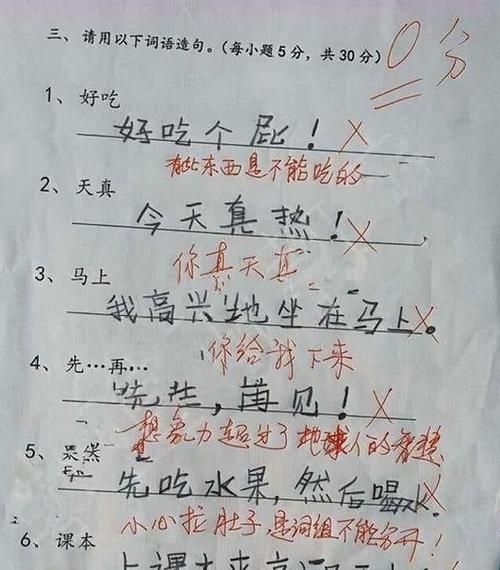 三、请用以下词语造句。(每小题5分，共30分) 0分
1、好吃
好吃个屁！
有些东西是不能吃的
2、天真
今天真热！
你真天真
3、马上
我高兴地坐在马上。
你给我下来
4、先…再…
先生，再见！
想象力超过了地球人的智慧
5、果然
先吃水果，然后喝水。
小心拉肚子，是词组不能分开！
6、课本
上课本来